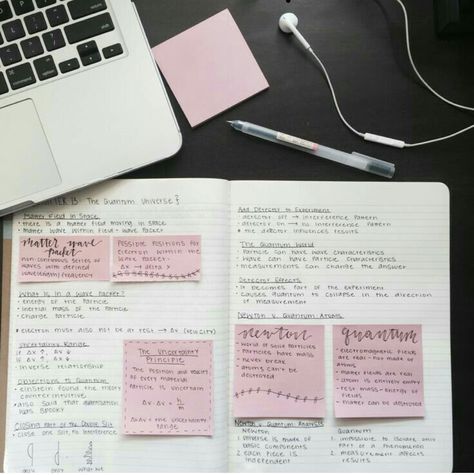 THE QUANTUM UNIVERSE
MATTER FIELD IN SPACE
• THERE IS A MATTER FIELD MOVING IN SPACE
• MATTER WAVE WITHIN FIELD - WAVE PACKET
matter wave packet
NON-CONTINUOUS SERIES OF WAVES WITH DEFINED WAVELENGTH/FREQUENCY
POSSIBLE POSITIONS FOR ELECTRON WITHIN THE WAVE PACKET -
ΔX → DELTA X
WHAT IS IN A WAVE PACKET?
• ENERGY OF THE PARTICLE
• INERTIAL MASS OF THE PARTICLE
• CHARGE PARTICLE
• ELECTRON MUST ALSO NOT BE AT REST → ΔV (VELOCITY)
UNCERTAINTY RANGE
IF ΔX ↑, ΔV ↓
IF ΔX ↓, ΔV ↑
• INVERSE RELATIONSHIP
THE UNCERTAINTY PRINCIPLE
• THE POSITION AND VELOCITY OF EVERY MATERIAL PARTICLE IS UNCERTAIN
OBJECTIONS TO QUANTUM
• EINSTEIN FOUND THE THEORY
• ALSO SAID THAT
WAS SPOOKY
CLOSING PART OF THE DOUBLE SLIT
• CLOSE ONE SLIT, NO INTERFERENCE
ADD DETECTOR TO EXPERIMENT
• DETECTOR OFF → INTERFERENCE PATTERN
• DETECTOR ON → NO INTERFERENCE PATTERN
• THE DETECTOR INFLUENCES RESULTS
THE QUANTUM WORLD
• PARTICLE CAN HAVE WAVE CHARACTERISTICS
• WAVE CAN HAVE PARTICLE CHARACTERISTICS
• MEASUREMENTS CAN CHANGE THE ANSWER
DETECTOR EFFECTS
• IT BECOMES PART OF THE EXPERIMENT
• CAUSES QUANTUM TO COLLAPSE IN THE DIRECTION OF MEASUREMENT
NEWTON V. QUANTUM: ATOMS
newton
• WORLD OF SOLID PARTICLES
• PARTICLES HAVE MASS
• NEVER BREAK
• ATOMS CAN'T BE DESTROYED
quantum
• ELECTROMAGNETIC FIELDS ARE REAL - FOR MADE ATOMS
• MATTER FIELDS ARE REAL
• ATOM IS ENTIRELY EMPTY
• REST MASS - ENERGY OF FIELDS
• MATTER CAN BE DESTROYED
NEWTON V. QUANTUM: ANALYSIS
NEWTON
1. UNIVERSE IS MADE OF BASIC COMPONENTS
2. EACH PIECE IS INDEPENDENT
QUANTUM
1. IMPOSSIBLE TO ISOLATE ONLY PART OF A PHENOMENON
2. MEASUREMENT AFFECTS RESULTS